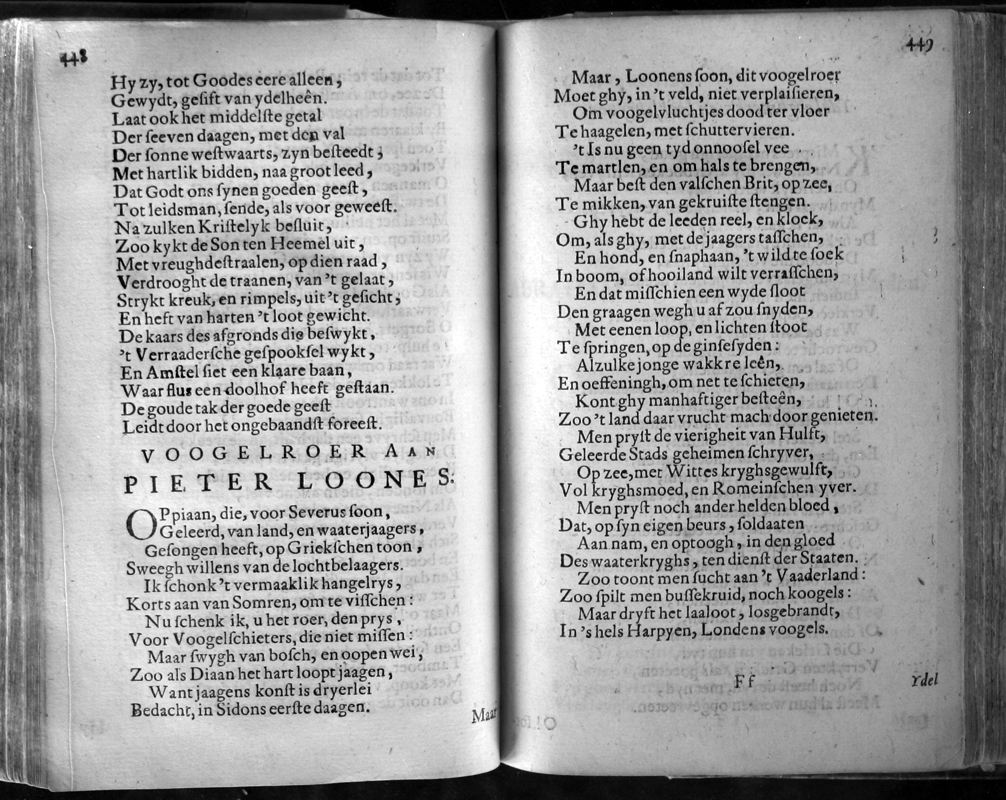 448
Hy zy, tot Goodes eere alleen,
Gewydt, gesift van ydelheên.
Laat ook het middelste getal
Der seeven daagen, met den val
Der sonne westwaarts, zyn besteedt;
Met hartlik bidden, naa groot leed,
Dat Godt ons synen goeden geest,
Tot leidsman, sende, als voor geweest.
Na zulken Kristelyk besluit,
Zoo kykt de Son ten Heemel uit,
Met vreughdestraalen, op dien raad,
Verdrooght de traanen, van 't gelaat,
Strykt kreuk, en rimpels, uit 't gesicht;
En heft van harten 't loot gewicht.
De kaars des afgronds die beswykt,
't Verraadersche gespooksel wykt,
En Amstel siet een klaare baan,
Waar flus een doolhof heeft gestaan.
De goude tak der goede geest
Leidt door het ongebaandst foreest.
VOOGELROER AAN
PIETER LOONES.
OPpiaan, die, voor Severus soon,
Geleerd, van land, en waaterjaagers,
Gesongen heeft, op Griekschen toon,
Sweegh willens van de lochtbelaagers.
Ik schonk 't vermaaklik hangelrys,
Korts aan van Somren, om te visschen:
Nu schenk ik, u het roer, den prys,
Voor Voogelschieters, die niet missen:
Maar swygh van bosch, en oopen wei,
Zoo als Diaan het hart loopt jaagen,
Want jaagens konst is dryerlei
Bedacht, in Sidons eerste daagen.
Maar
449
Maar, Loonens soon, dit voogelroer
Moet ghy, in 't veld, niet verplaisieren,
Om voogelvluchtjes dood ter vloer
Te haagelen, met schuttervieren.
't Is nu geen tyd onnoosel vee
Te martlen, en om hals te brengen,
Maar best den valschen Brit, op zee,
Te mikken, van gekruiste stengen.
Ghy hebt de leeden reel, en kloek,
Om, als ghy, met de jaagers tasschen,
En hond, en snaphaan, 't wild te soek
In boom, of hooiland wilt verrasschen,
En dat misschien een wyde sloot
Den graagen wegh u af zou snyden,
Met eenen loop, en lichten stoot
Te springen, op de ginsesyden:
Al zulke jonge wakkre leên,
En oeffeningh, om net te schieten,
Kont ghy manhaftiger besteên,
Zoo 't land daar vrucht mach door genieten.
Men pryst de vierigheit van Hulst,
Geleerde Stads geheimen schryver,
Op zee, met Wittes kryghsgewulst,
Vol kryghsmoed, en Romeinschen yver.
Men pryst noch ander helden bloed,
Dat, op syn eigen beurs, soldaaten
Aan nam, en optoogh, in den gloed
Des waaterkryghs, ten dienst der Staaten.
Zoo toont men sucht aan 't Vaaderland:
Zoo spilt men bussekruid, noch koogels:
Maar dryft het laaloot, losgebrandt,
In 's hels Harpyen, Londens voogels.
Ff
Ydel